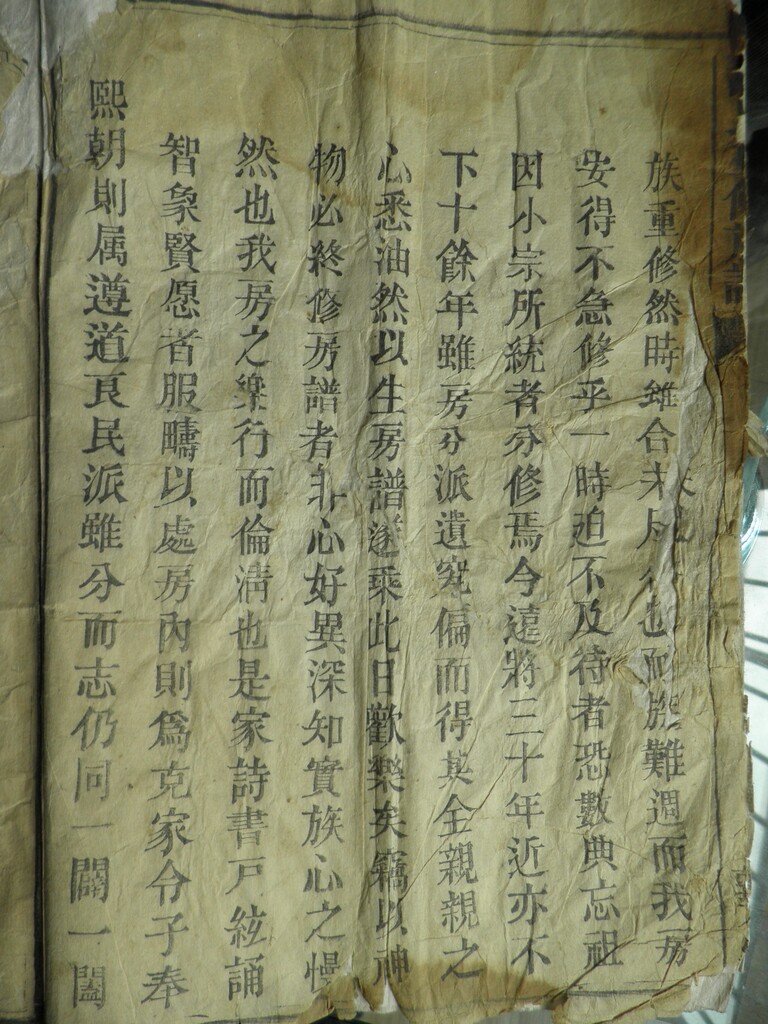 族重修然時雖合未及行也而族難遇而我房
安得不急修乎一時迫不及待者恐數典忘祖
因小宗所統者分修焉今遠將三十年近亦不
下十餘年雖房分派遺究偏而得其全親親之
心悉油然以生房譜遂乘此日歡樂矣竊以神
物必終修房譜者非心好異深知實族心之慢
然也我房之樂行而倫淸也是家詩書戸絃誦
智象賢愿者服疇以處房內則爲克家令子奉
熙朝則属遵道良民派雖分而志仍同一闢一闔